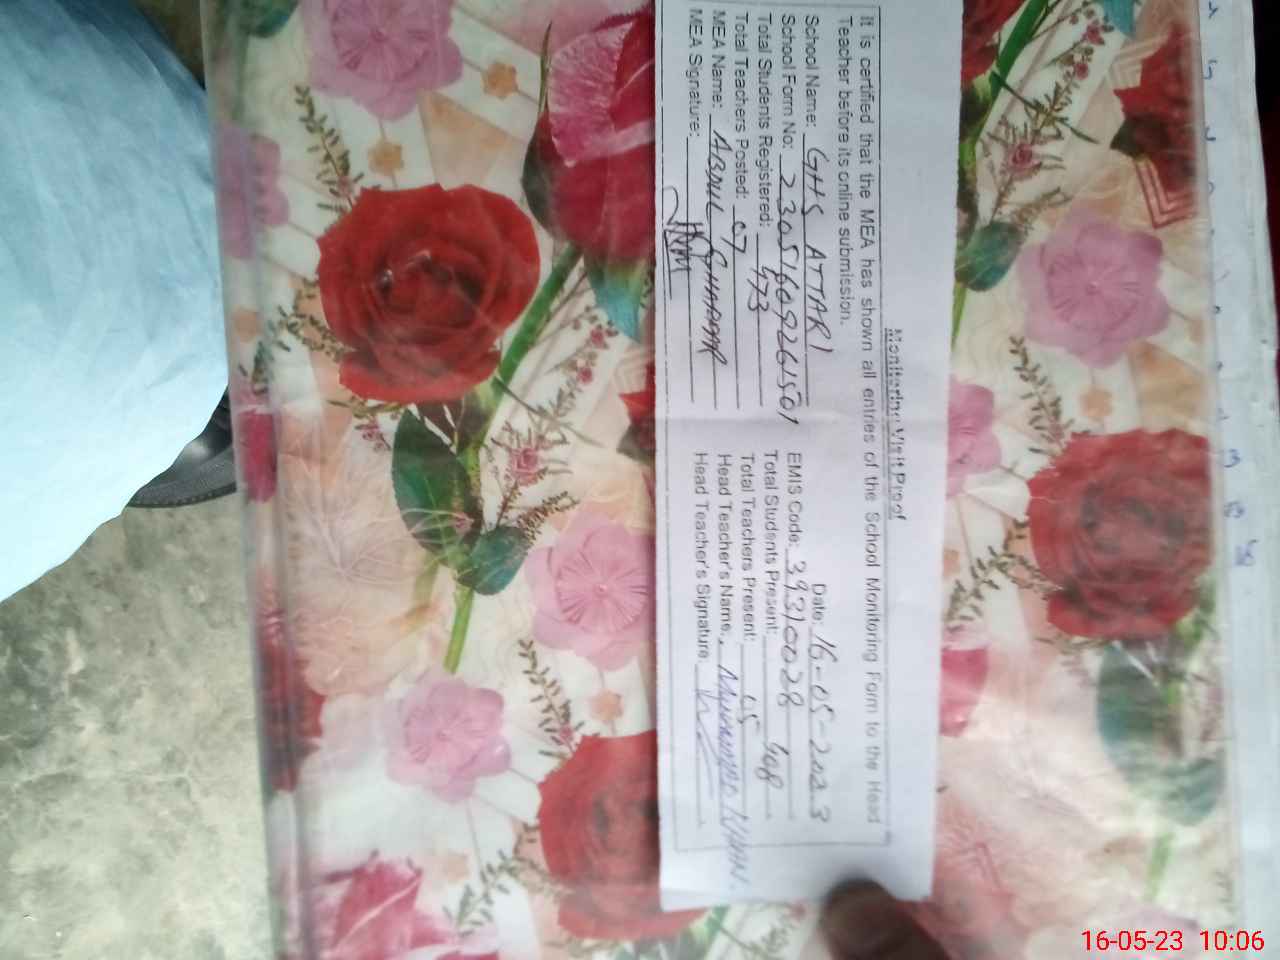 Monitoring Visit Proof
It is certified that the MEA has shown all entries of the School Monitoring Form to the Head
Teacher before its online submission.
Date: 16-05-2023
School Name: GHS ATTARI
School Form No: 23051609261501 EMIS Code: 39310028
Total Students Registered: 473 Total Students Present: 408
Total Teachers Posted: 07 Total Teachers Present:
MEA Name: ABDUL GHAFFAR Head Teacher's Name: Muhammad Khan.
MEA Signature: Head Teacher's Signature
16-05-23 10:06